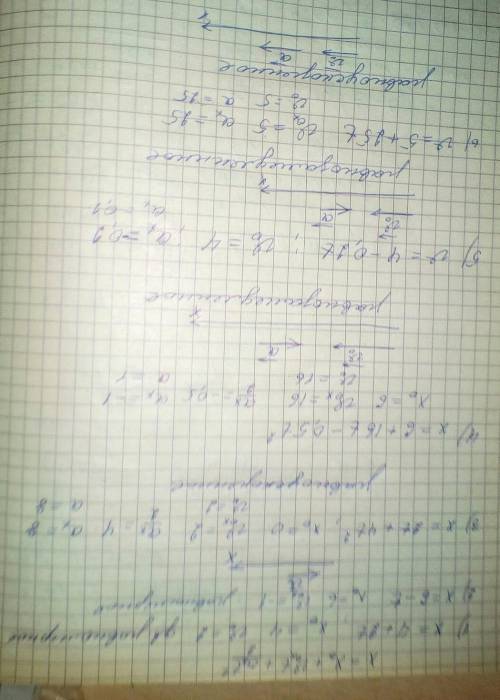 x = x₀ + v₀ₓt + aₓt²/2
1) x = 4 + 2t x₀ = 4 v₀ = 2 равномерное
2) x = 6 - t x₀ = 6 равномерное
x
3) x = 2t + 4t²; x₀ = 0 v₀ₓ = 2 aₓ/2 = 4 aₓ = 8
v₀ = 2 a = 8
равноускоренное
4) x = 6 + 16t - 0,5t²
x₀ = 6 v₀ₓ = 16 aₓ/2 = -0,5 aₓ = -1
v₀ = 16 a = 1
v₀ a
x
равнозамедленное
5) v = 4 - 0,1t ; v₀ = 4 ; aₓ = -0,1
a = 0,1
v₀ a
x
равнозамедленное
6) v = 5 + 15t v₀ₓ = 5 aₓ = 15
v₀ = 5 a = 15
равноускоренное
v₀ a
x